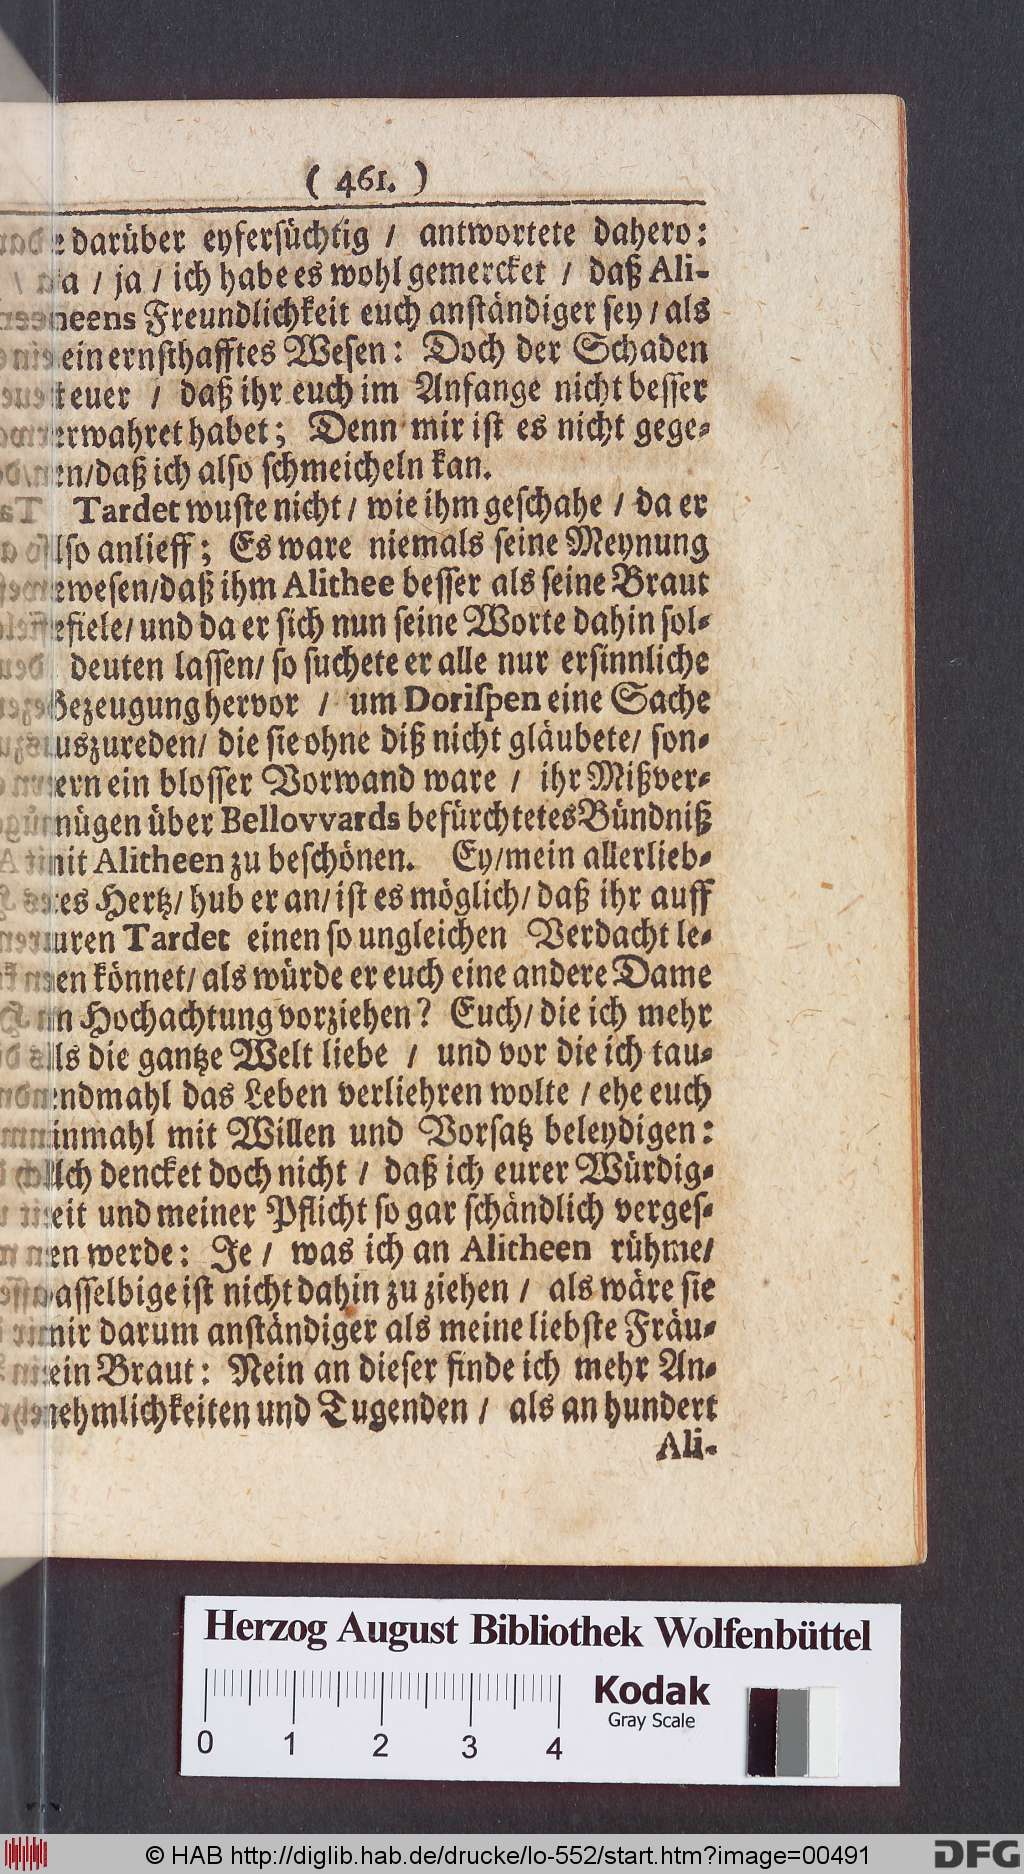 ( 461. )
darüber eyfersüchtig / antwortete dahero:
ja / ja / ich habe es wohl gemercket / daß Ali-
theens Freundlichkeit euch anständiger sey / als
mein ernsthafftes Wesen: Doch der Schaden
ist euer / daß ihr euch im Anfange nicht besser
verwahret habet; Denn mir ist es nicht gege-
ben/daß ich also schmeicheln kan.
Tardet wuste nicht / wie ihm geschahe / da er
also anlieff; Es ware niemals seine Meynung
gewesen/daß ihm Alithee besser als seine Braut
gefiele/ und da er sich nun seine Worte dahin sol-
deuten lassen/ so suchete er alle nur ersinnliche
Bezeugung hervor / um Dorispen eine Sache
auszureden/ die sie ohne diß nicht gläubete/ son-
dern ein blosser Vorwand ware / ihr Mißver-
gnügen über Bellovvards befürchtetes Bündniß
mit Alitheen zu beschönen. Ey/mein allerlieb-
stes Hertz/ hub er an/ ist es möglich/ daß ihr auff
euren Tardet einen so ungleichen Verdacht le-
gen könnet/ als würde er euch eine andere Dame
in Hochachtung vorziehen? Euch/ die ich mehr
als die gantze Welt liebe / und vor die ich tau-
sendmahl das Leben verliehren wolte / ehe euch
einmahl mit Willen und Vorsatz beleydigen:
Ach dencket doch nicht / daß ich eurer Würdig-
keit und meiner Pflicht so gar schändlich verges-
sen werde: Je / was ich an Alitheen rühme/
dasselbige ist nicht dahin zu ziehen / als wäre sie
mir darum anständiger als meine liebste Fräu-
lein Braut: Nein an dieser finde ich mehr An-
nehmlichkeiten und Tugenden / als an hundert
Ali-
Herzog August Bibliothek Wolfenbüttel
Kodak
Gray Scale
0 1 2 3 4
© HAB http://diglib.hab.de/drucke/lo-552/start.htm?image=00491
DFG